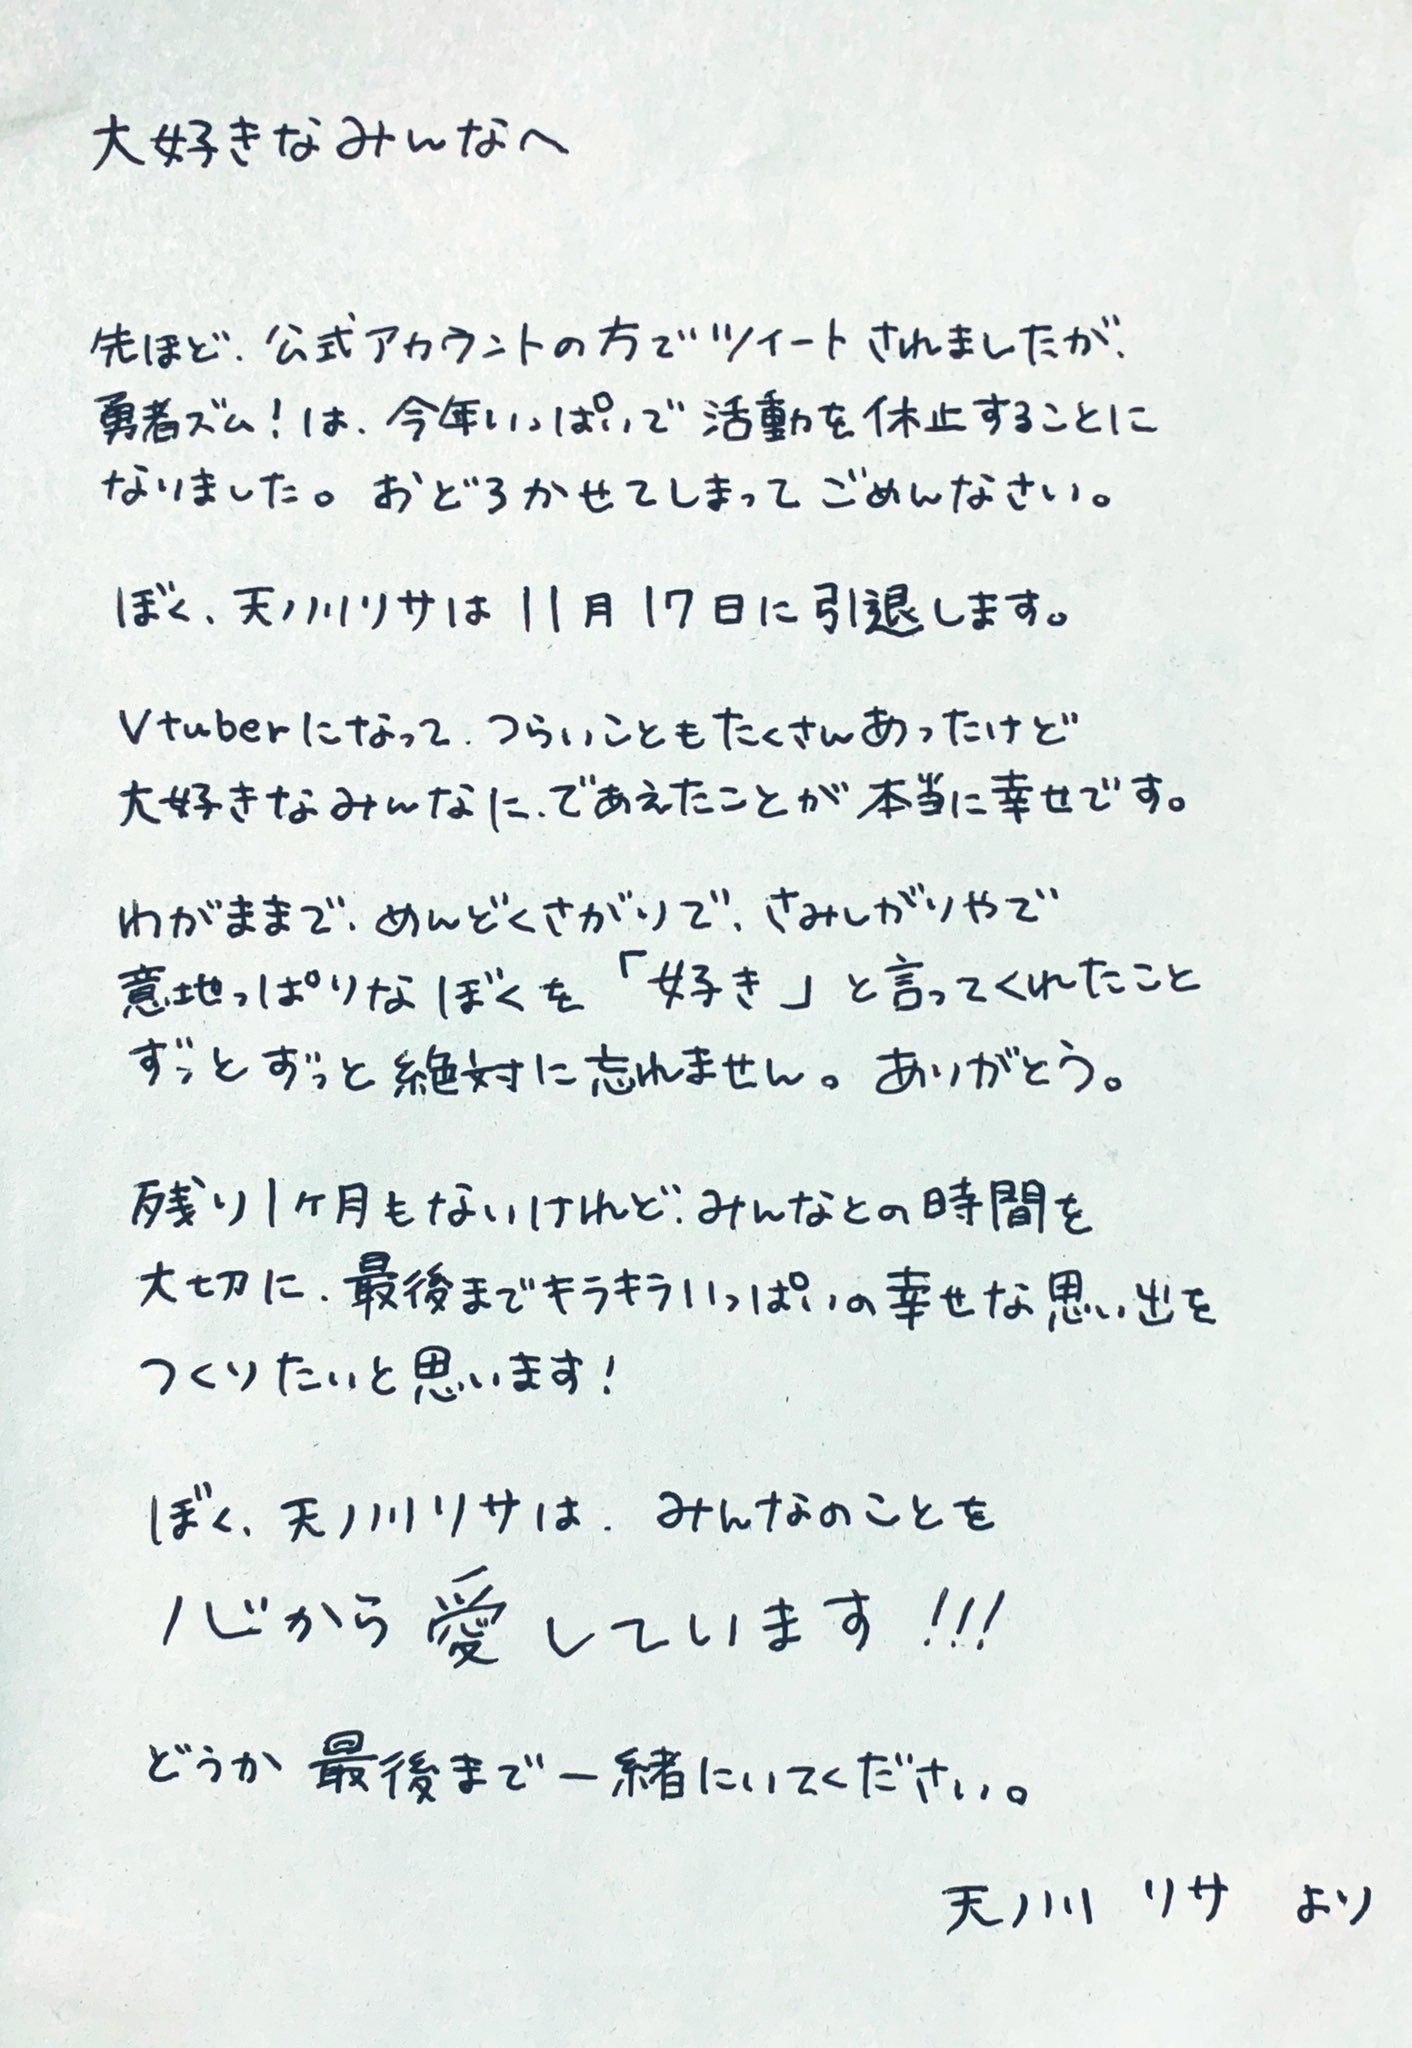 大好きなみんなへ
先ほど、公式アカウントの方でツイートされましたが、
勇者ズム!は、今年いっぱいで活動を休止することに
なりました。おどろかせてしまってごめんなさい。
ぼく、天ノ川リサは11月17日に引退します。
Vtuberになって、つらいこともたくさんあったけど
大好きなみんなに、であえたことが本当に幸せです。
わがままで、めんどくさがりで、さみしがりやで
意地っぱりなぼくを「好き」と言ってくれたこと
ずっとずっと絶対に忘れません。ありがとう。
残り1ヶ月もないけれど、みんなとの時間を
大切に、最後までキラキラいっぱいの幸せな思い出を
つくりたいと思います!
ぼく、天ノ川リサは、みんなのことを
心から愛しています!!!
どうか最後まで一緒にいてください。
天ノ川 リサ より